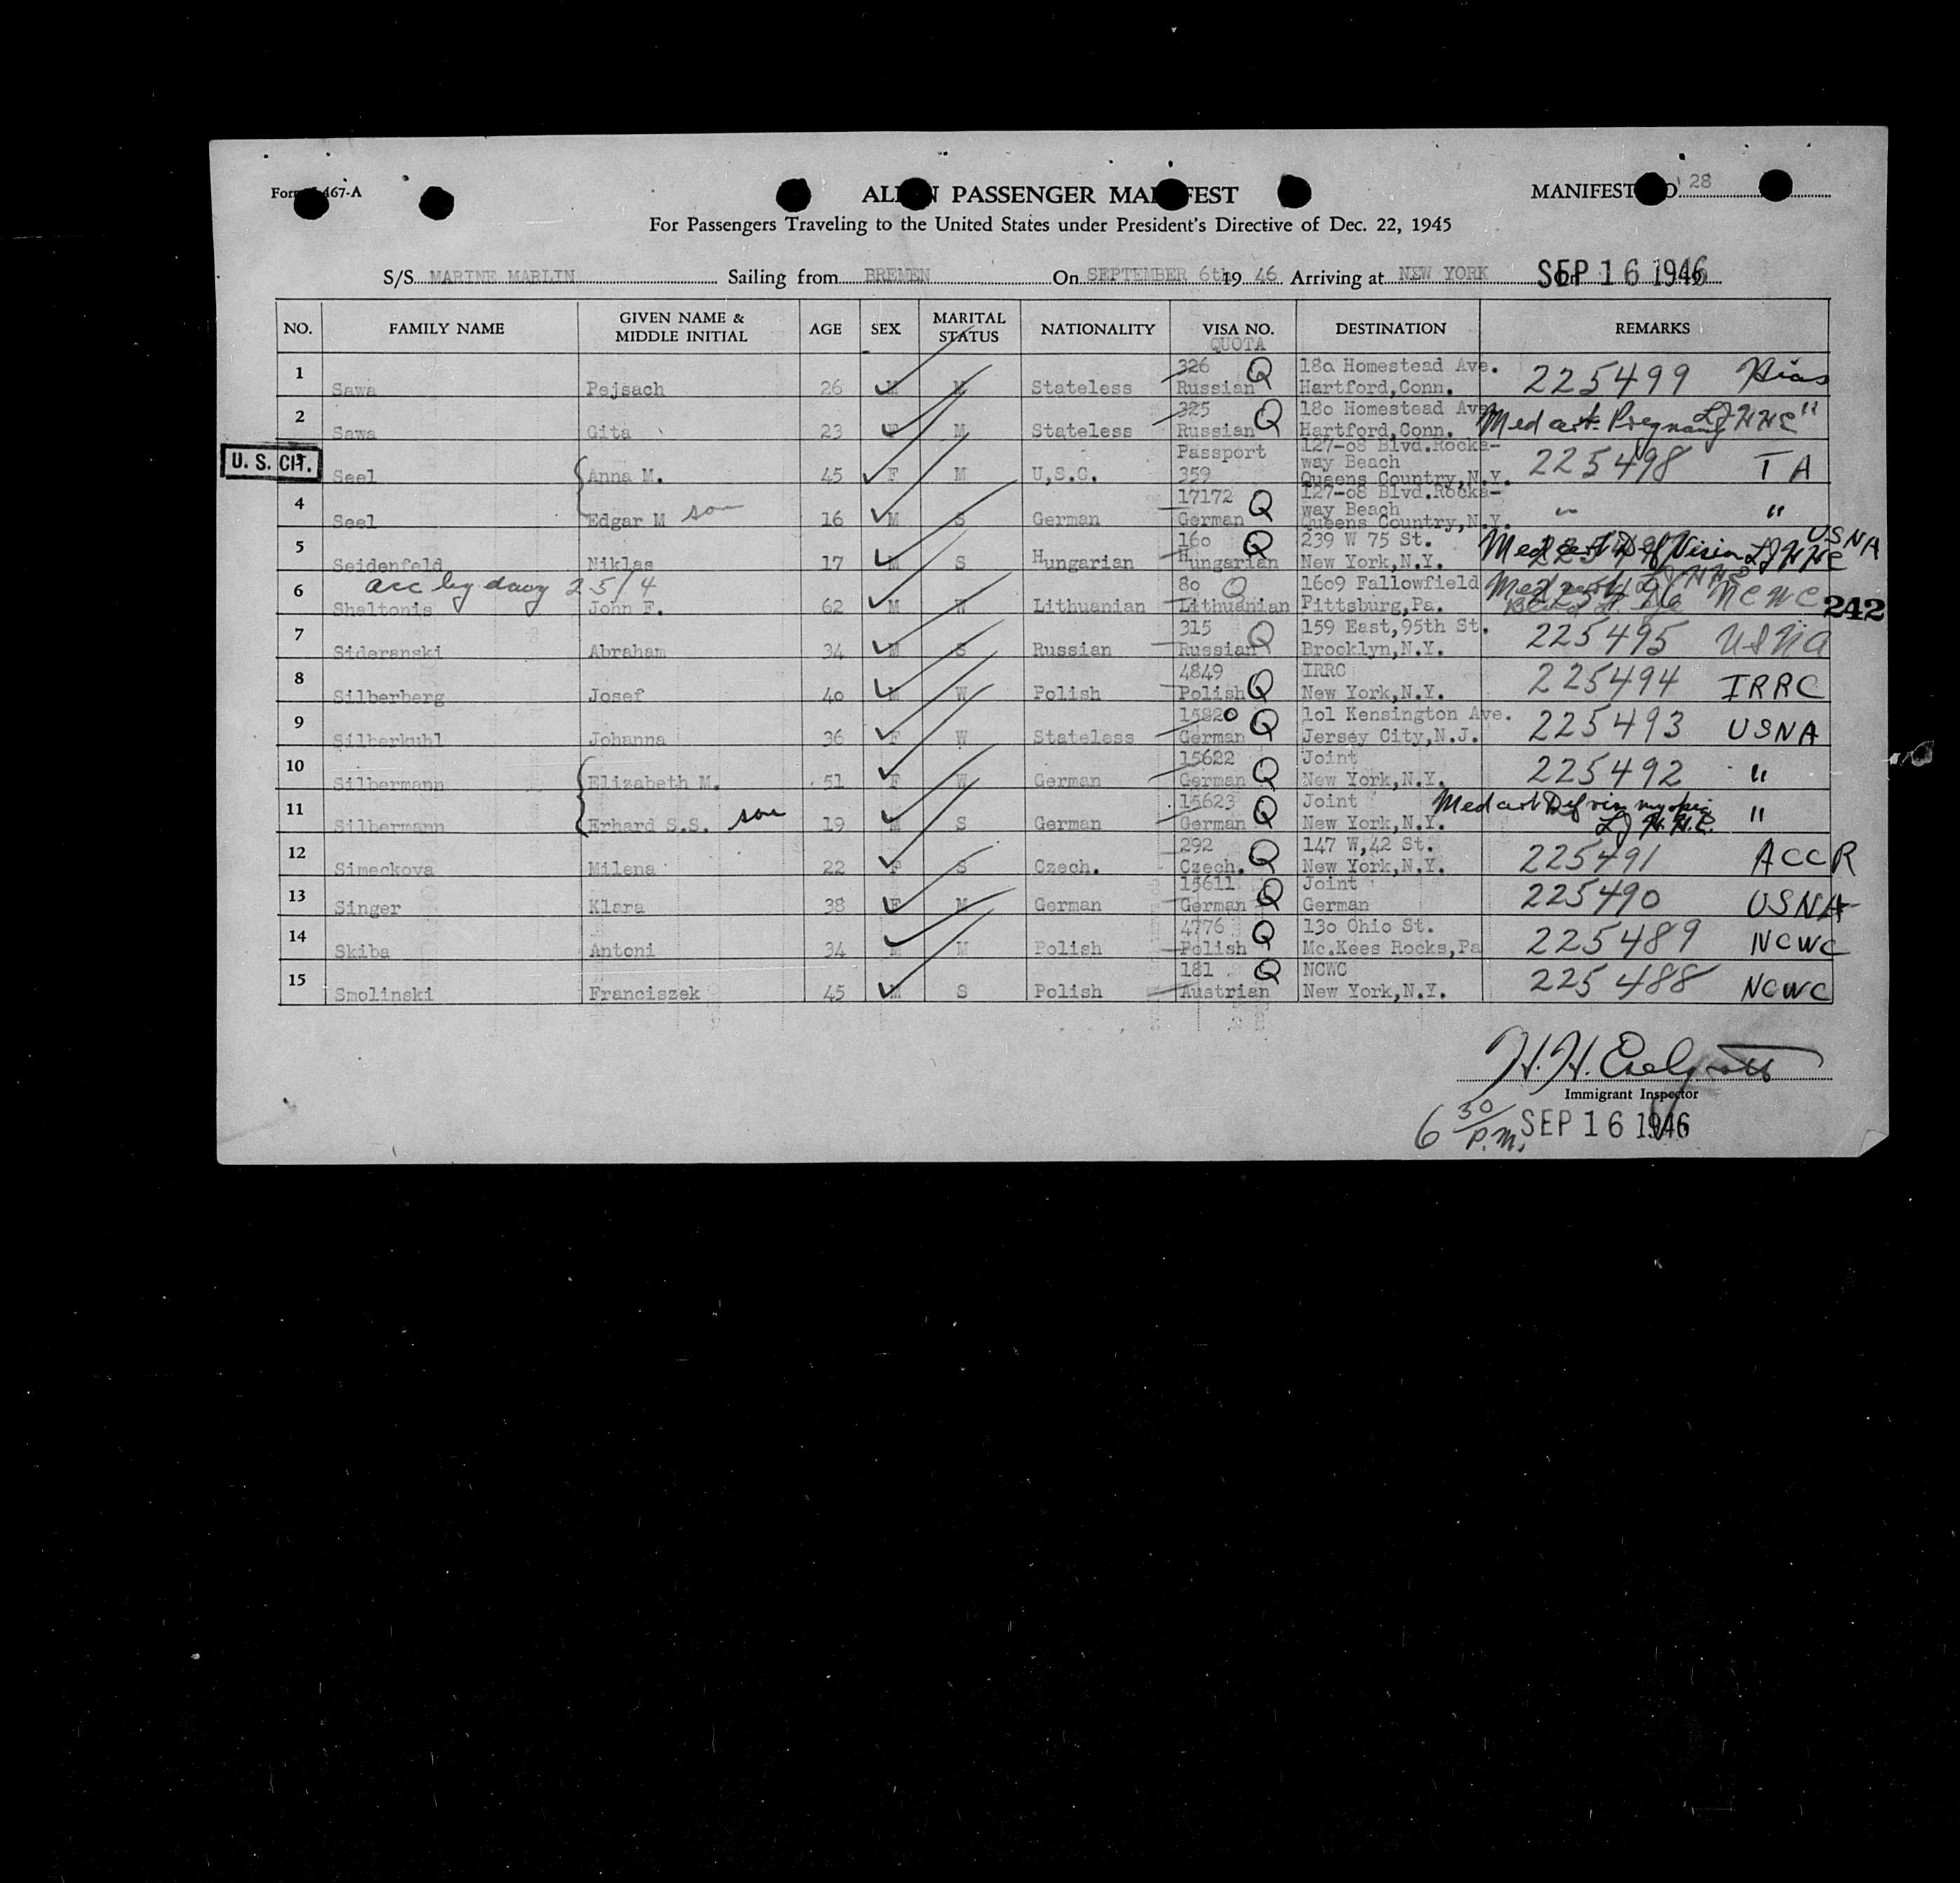 Form 467-A
PASSENGER
MANIFEST 28
For Passengers Traveling to the United States under President's Directive of Dec. 22, 1945
S/S MARINE MARLIN Sailing from BREMEN On SEPTEMBER 6th 19 46 Arriving at NEW YORK On SEP 16 1946
NO. FAMILY NAME GIVEN NAME & MIDDLE INITIAL AGE SEX MARITAL STATUS NATIONALITY VISA NO. QUOTA DESTINATION REMARKS
1 Sawa Pejsach 26 M M Stateless 326 Russian Q 18o Homestead Ave. Hartford,Conn. 225499 Hias
2 Sawa Gita 23 F M Stateless 325 Russian Q 18o Homestead Ave Hartford,Conn. Med cert. Pregnancy "
U. S. CIT.
Seel Anna M. 45 F M U,S.C. Passport 359 127-o8 Blvd.Rocka-way Beach Queens Country,N.Y. 225498 T A
4 Seel Edgar M son 16 M S German 17172 German Q 127-o8 Blvd.Rocka-way Beach Queens Country,N.Y. " "
5 Seidenfeld Niklas 17 M S Hungarian 16o Hungarian Q 239 W 75 St. New York,N.Y. Med cert Def Vision USNA
acc by 25/4
6 Shaltonis John F. 62 M W Lithuanian 8o Lithuanian Q 16o9 Fallowfield Pittsburg,Pa. Med cert NCWC
242
7 Sideranski Abraham 34 M S Russian 315 Russian Q 159 East,95th St. Brooklyn,N.Y. 225495 USNA
8 Silberberg Josef 4o M W Polish 4849 Polish Q IRRC New York,N.Y. 225494 IRRC
9 Silberkuhl Johanna 36 F W Stateless 15820 German Q 1o1 Kensington Ave. Jersey City,N.J. 225493 USNA
10 Silbermann Elizabeth M. 51 F W German 15622 German Q Joint New York,N.Y. 225492 "
11 Silbermann Erhard S.S. son 19 M S German 15623 German Q Joint New York,N.Y. Med cert Def vis myopic "
12 Simeckova Milena 22 F S Czech. 292 Czech. Q 147 W,42 St. New York,N.Y. 225491 ACCR
13 Singer Klara 38 F M German 15611 German Q Joint German 225490 USNA
14 Skiba Antoni 34 M M Polish 4776 Polish Q 13o Ohio St. Mc.Kees Rocks,Pa 225489 NCWC
15 Smolinski Franciszek 45 M S Polish 181 Austrian Q NCWC New York,N.Y. 225488 NCWC
H. H.
Immigrant Inspector
6 30/P.M. SEP 16 1946